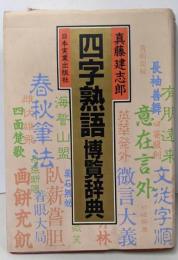 真藤建志郎
四字熟語博覧辞典
日本実業出版社
長袖善舞
有朋遠来
文従字順
意在言外
英華発外
微言大義
海誓山盟
臥薪嘗胆
着眼大局
春秋筆法
四面楚歌
画餅充飢